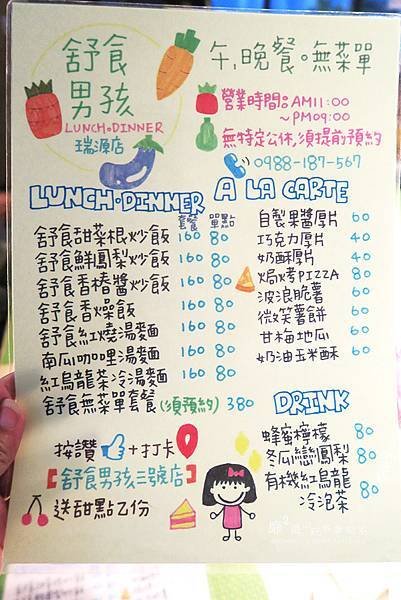 舒食
男孩
LUNCH.DINNER
瑞源店
午,晚餐。無菜單
營業時間:AM11:00
~PM09:00
無特定公休,須提前預約
0988-187-567
LUNCH.DINNER
套餐 單點
舒食甜菜根炒飯 160 80
舒食鮮鳳梨炒飯 160 80
舒食香椿醬炒飯 160 80
舒食香燥飯 160 80
舒食紅燒湯麵 160 80
南瓜咖哩湯麵 160 80
紅烏龍茶冷湯麵 160 80
舒食無菜單套餐(須預約) 380
A LA CARTE
自製果醬厚片 60
巧克力厚片 40
奶酥厚片 40
焗烤PIZZA 80
波浪脆薯 60
微笑薯餅 60
甘梅地瓜 60
奶油玉米酥 60
DRINK
蜂蜜檸檬 80
冬瓜戀鳳梨 80
有機紅烏龍
冷泡茶 80
按讚 + 打卡
【舒食男孩三號店】
送甜點乙份